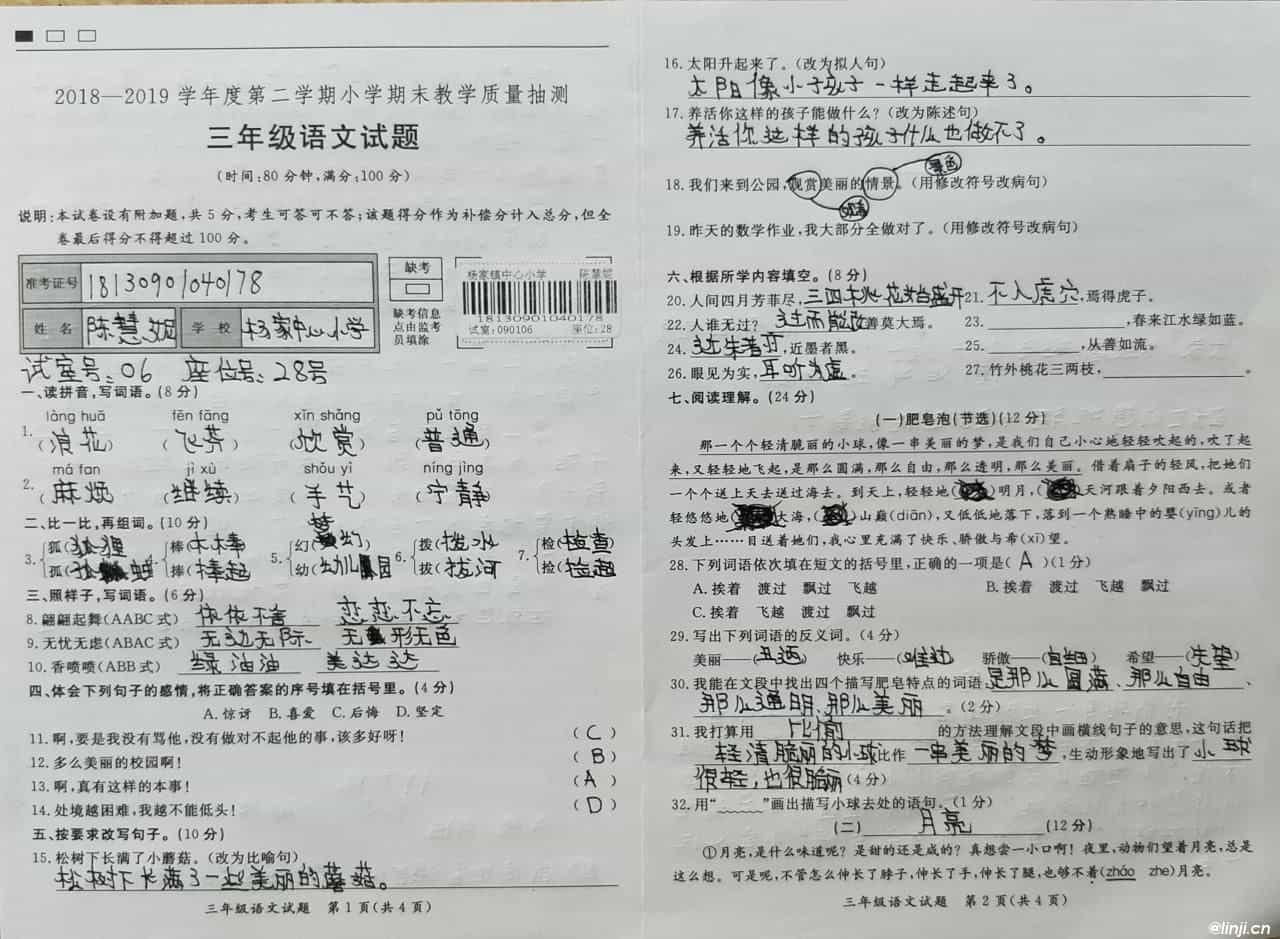 2018—2019 学年度第二学期小学期末教学质量抽测
三年级语文试题
(时间:80 分钟,满分:100 分)
说明:本试卷设有附加题,共 5 分,考生可答可不答;该题得分作为补偿分计入总分,但全
卷最后得分不得超过 100 分。
准考证号 18130901040178
姓 名 陈慧妮 学 校 杨家中心小学
缺考
缺考信息
点由监考
员填涂
杨家镇中心小学 陈慧妮
18130901040178
试室:090106 座位:28
试室号:06 座位号:28号
一、读拼音,写词语。(8 分)
làng huā fēn fāng xīn shǎng pǔ tōng
1.(浪花) (飞芬) (欣赏) (普通)
má fan jì xù shǒu yì níng jìng
2.(麻烦) (继续) (手艺) (宁静)
二、比一比,再组词。(10 分)
3. 狐(狐狸) 4. 棒(木棒) 5. 幻(梦幻) 6. 拨(拨水) 7. 检(检查)
孤( 捧(捧起) 幼(幼儿园) 拔(拔河) 捡(捡起)
三、照样子,写词语。(6 分)
8. 翩翩起舞(AABC 式) 依依不舍 恋恋不忘
9. 无忧无虑(ABAC 式) 无边无际 无形无色
10. 香喷喷(ABB 式) 绿油油 美达达
四、体会下列句子的感情,将正确答案的序号填在括号里。(4 分)
A. 惊讶 B. 喜爱 C. 后悔 D. 坚定
11. 啊,要是我没有骂他,没有做对不起他的事,该多好呀! (C)
12. 多么美丽的校园啊! (B)
13. 啊,真有这样的本事! (A)
14. 处境越困难,我越不能低头! (D)
五、按要求改写句子。(10 分)
15. 松树下长满了小蘑菇。(改为比喻句)
松树下长满了一些美丽的蘑菇。
三年级语文试题 第 1 页(共 4 页)
16. 太阳升起来了。(改为拟人句)
太阳像小孩子一样走起来了。
17. 养活你这样的孩子能做什么?(改为陈述句)
养活你这样的孩子什么也做不了。
景色
18. 我们来到公园,观赏美丽的情景。(用修改符号改病句)
19. 昨天的数学作业,我大部分全做对了。(用修改符号改病句)
六、根据所学内容填空。(8 分)
20. 人间四月芳菲尽,三四桃花始盛开 21. 不入虎穴,焉得虎子。
22. 人谁无过? 过而能改善莫大焉。 23. ,春来江水绿如蓝。
24. 近朱者赤,近墨者黑。 25. ,从善如流。
26. 眼见为实,耳听为虚。 27. 竹外桃花三两枝, 。
七、阅读理解。(24 分)
(一)肥皂泡(节选)(12 分)
那一个个轻清脆丽的小球,像一串美丽的梦,是我们自己小心地轻轻吹起的,吹了起
来,又轻轻地飞起,是那么圆满,那么自由,那么透明,那么美丽。借着扇子的轻风,把她们
一个个送上天去送过海去。到天上,轻轻地( )明月,( )天河跟着夕阳西去。或者
轻悠悠地( )大海,( )山巅(diān),又低低地落下,落到一个熟睡中的婴(yīng)儿的
头发上……目送着她们,我心里充满了快乐、骄傲与希(xī)望。
28. 下列词语依次填在短文的括号里,正确的一项是( A )(1 分)
A. 挨着 渡过 飘过 飞越 B. 挨着 渡过 飞越 飘过
C. 挨着 飞越 渡过 飘过
29. 写出下列词语的反义词。(4 分)
美丽——(丑陋) 快乐——( ) 骄傲——( ) 希望——(失望)
30. 我能在文段中找出四个描写肥皂特点的词语:是那么圆满、那么自由、
那么透明、那么美丽。(2 分)
31. 我打算用 比喻 的方法理解文段中画横线句子的意思,这句话把
轻清脆丽的小球比作 一串美丽的梦,生动形象地写出了小球
很轻,也很脆丽(4 分)
32. 用“﹏﹏”画出描写小球去处的语句。(1 分)
(二) 月亮 (12 分)
①月亮,是什么味道呢?是甜的还是咸的?真想尝一小口啊!夜里,动物们望着月亮,总是
这么想。可是呢,不管怎么伸长了脖子,伸长了手,伸长了腿,也够不着(zháo zhe)月亮。
三年级语文试题 第 2 页(共 4 页)
@linji.cn